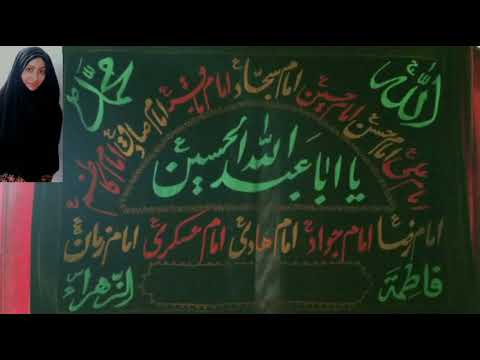 الله محمد ص
امام علی ع امام حسن ع امام حسین ع امام سجاد ع امام باقر ع امام صادق ع امام کاظم ع
یا ابا عبد الله الحسین ع
امام رضا ع امام جواد ع امام هادی ع امام عسکری ع امام زمان
فاطمة الزهراء